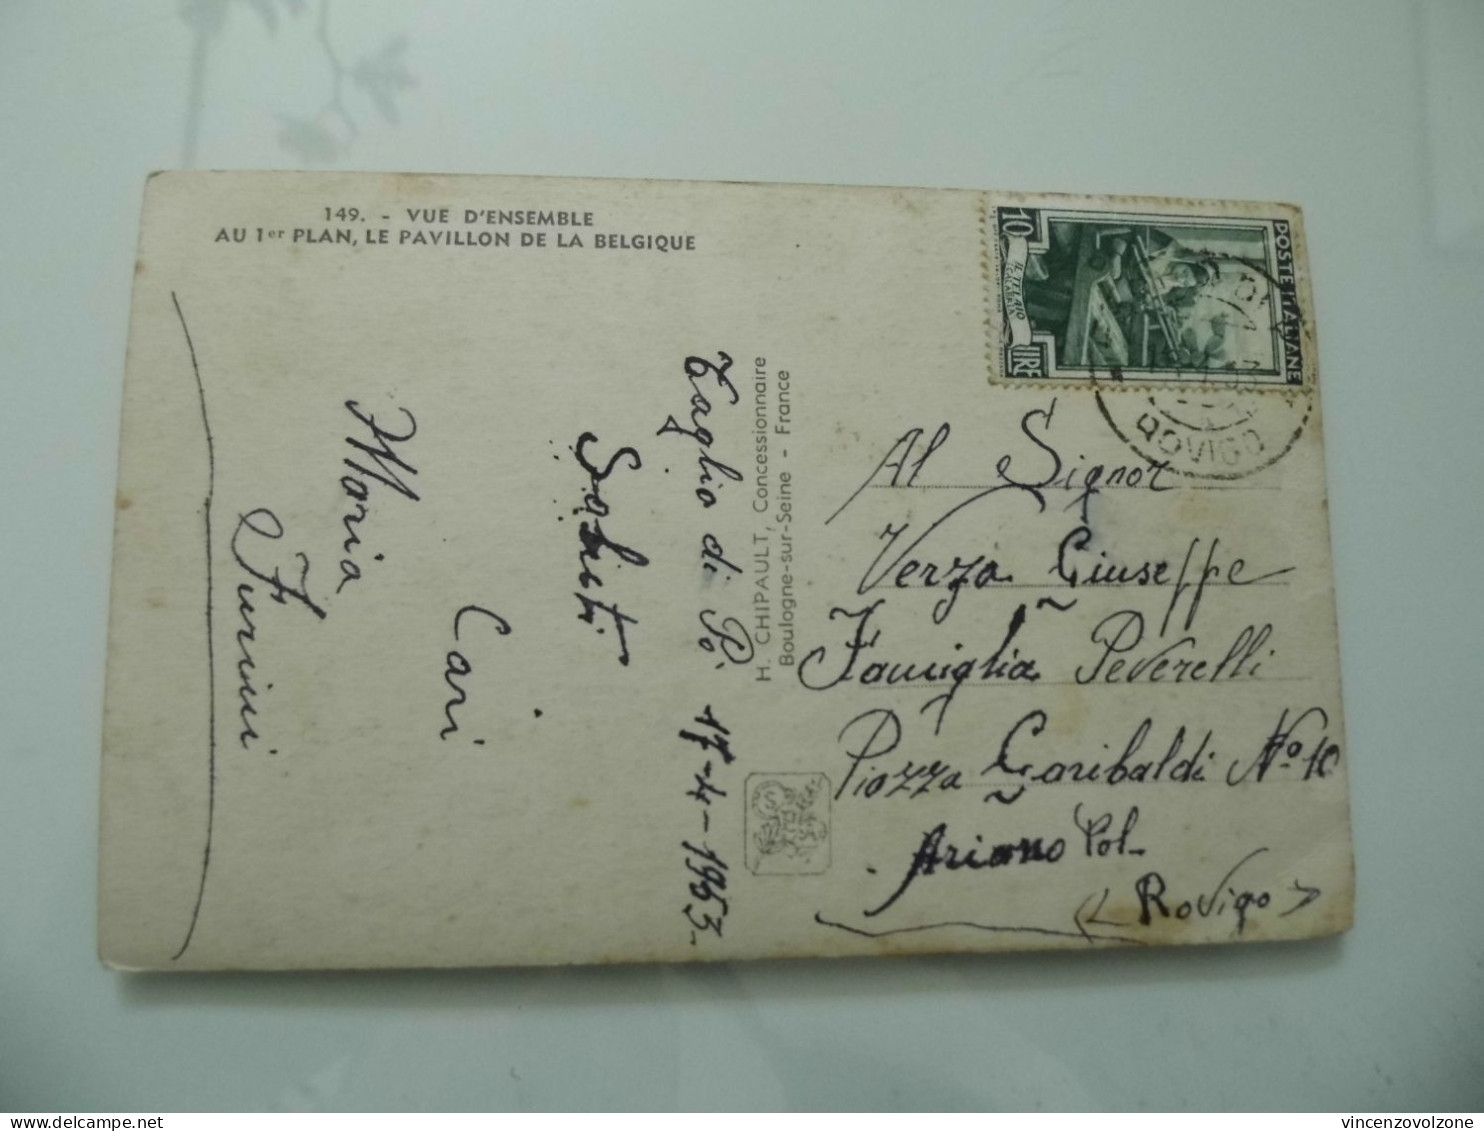 149. - VUE D'ENSEMBLE
AU 1er PLAN, LE PAVILLON DE LA BELGIQUE
POSTE ITALIANE
10
LIRE
IL TELAIO
ROVIGO
H. CHIPAULT, Concessionnaire
Boulogne-sur-Seine - France
Taglio di Pò 17-4-1953-
Saluti
Cari
Maria
Furini
Al Signor
Verza Giuseppe
Famiglia Peverelli
Piazza Garibaldi Nº 10
Ariano Pol-
(Rovigo)
vincenzovolzone